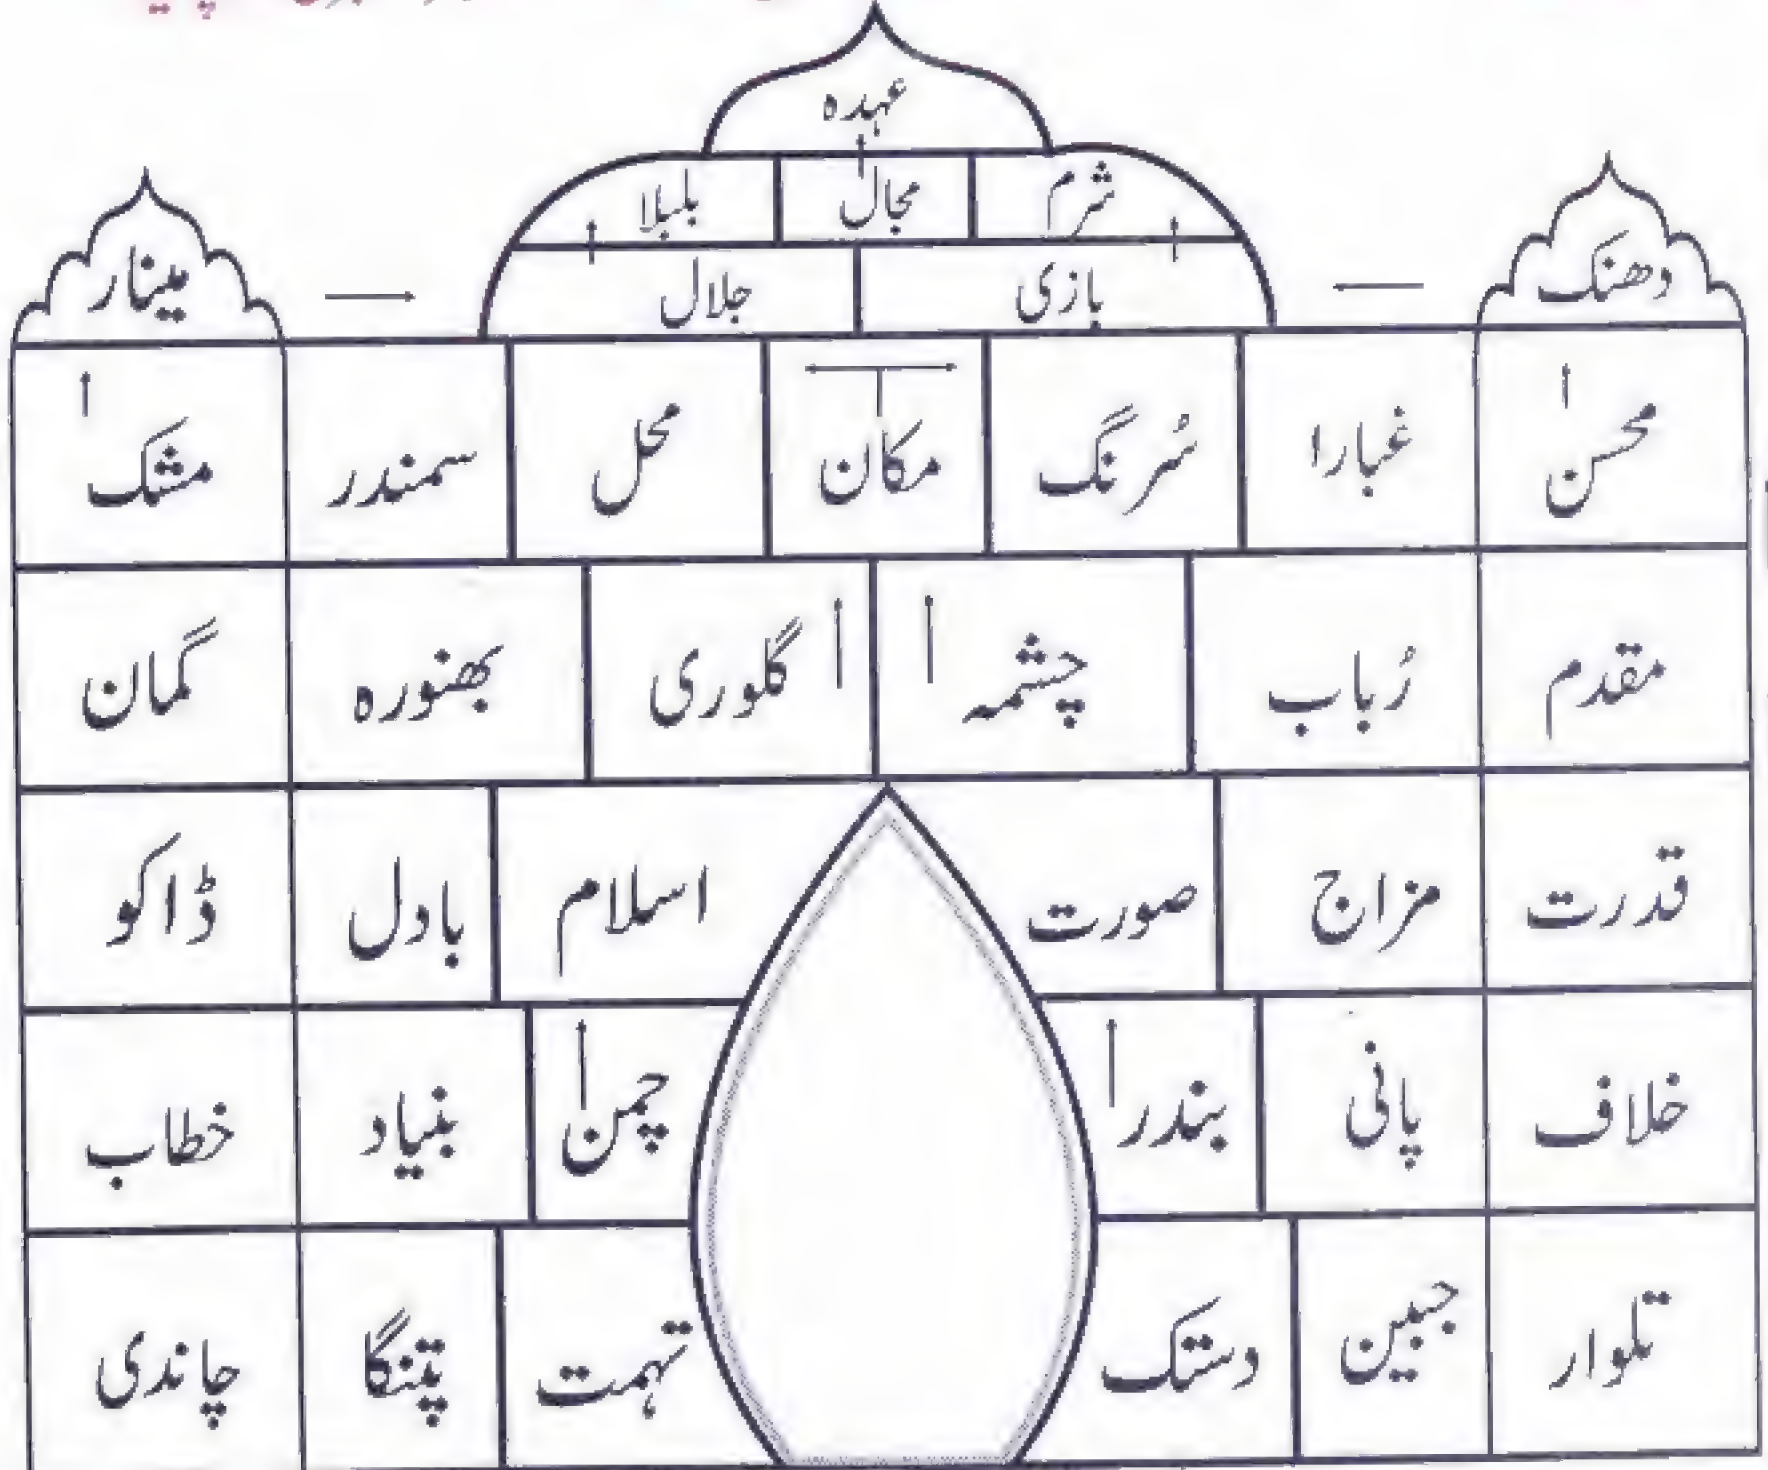 عہدہ
شرم مجال بلبلا
دھنک بازی جلال مینار
محسن غبارا سُرنگ مکان محل سمندر مشک
مقدم رُباب چشمہ گلوری بھنورہ گمان
قدرت مزاج صورت اسلام بادل ڈاکو
خلاف پانی بندر چمن بنیاد خطاب
تلوار جبین دستک تہمت پتنگا چاندی